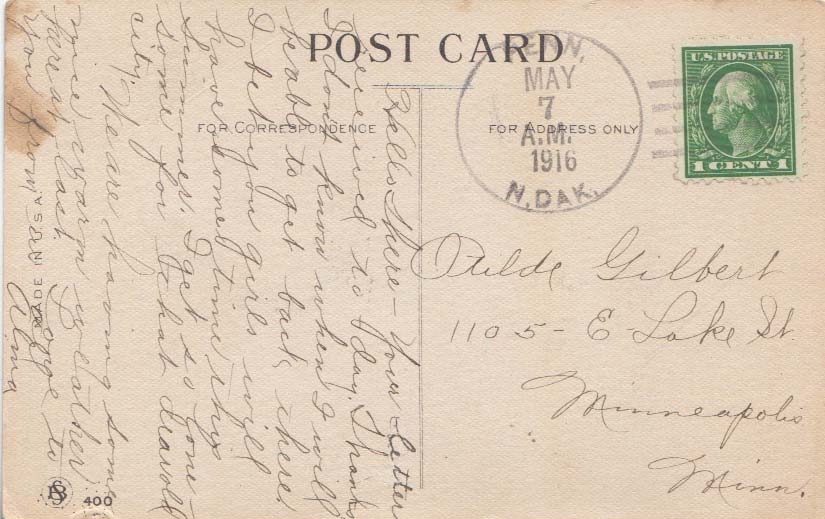 POST CARD
FOR CORRESPONDENCE
FOR ADDRESS ONLY
PENN,
MAY
7
A.M.
1916
N. DAK.
U.S. POSTAGE
1 CENT 1
Hello There - Your letter
received to day. Thanks
I don't know when I will
be able to get back there.
I bet you girls will
have some time this
Summer. I get so lone-
some for that
city.
We are having some
nice warm weather
here at last.
from
George to
you
Alma
Otilde Gilbert
1105 - E Lake St.
Minneapolis
Minn.
MADE IN U.S.A.
400